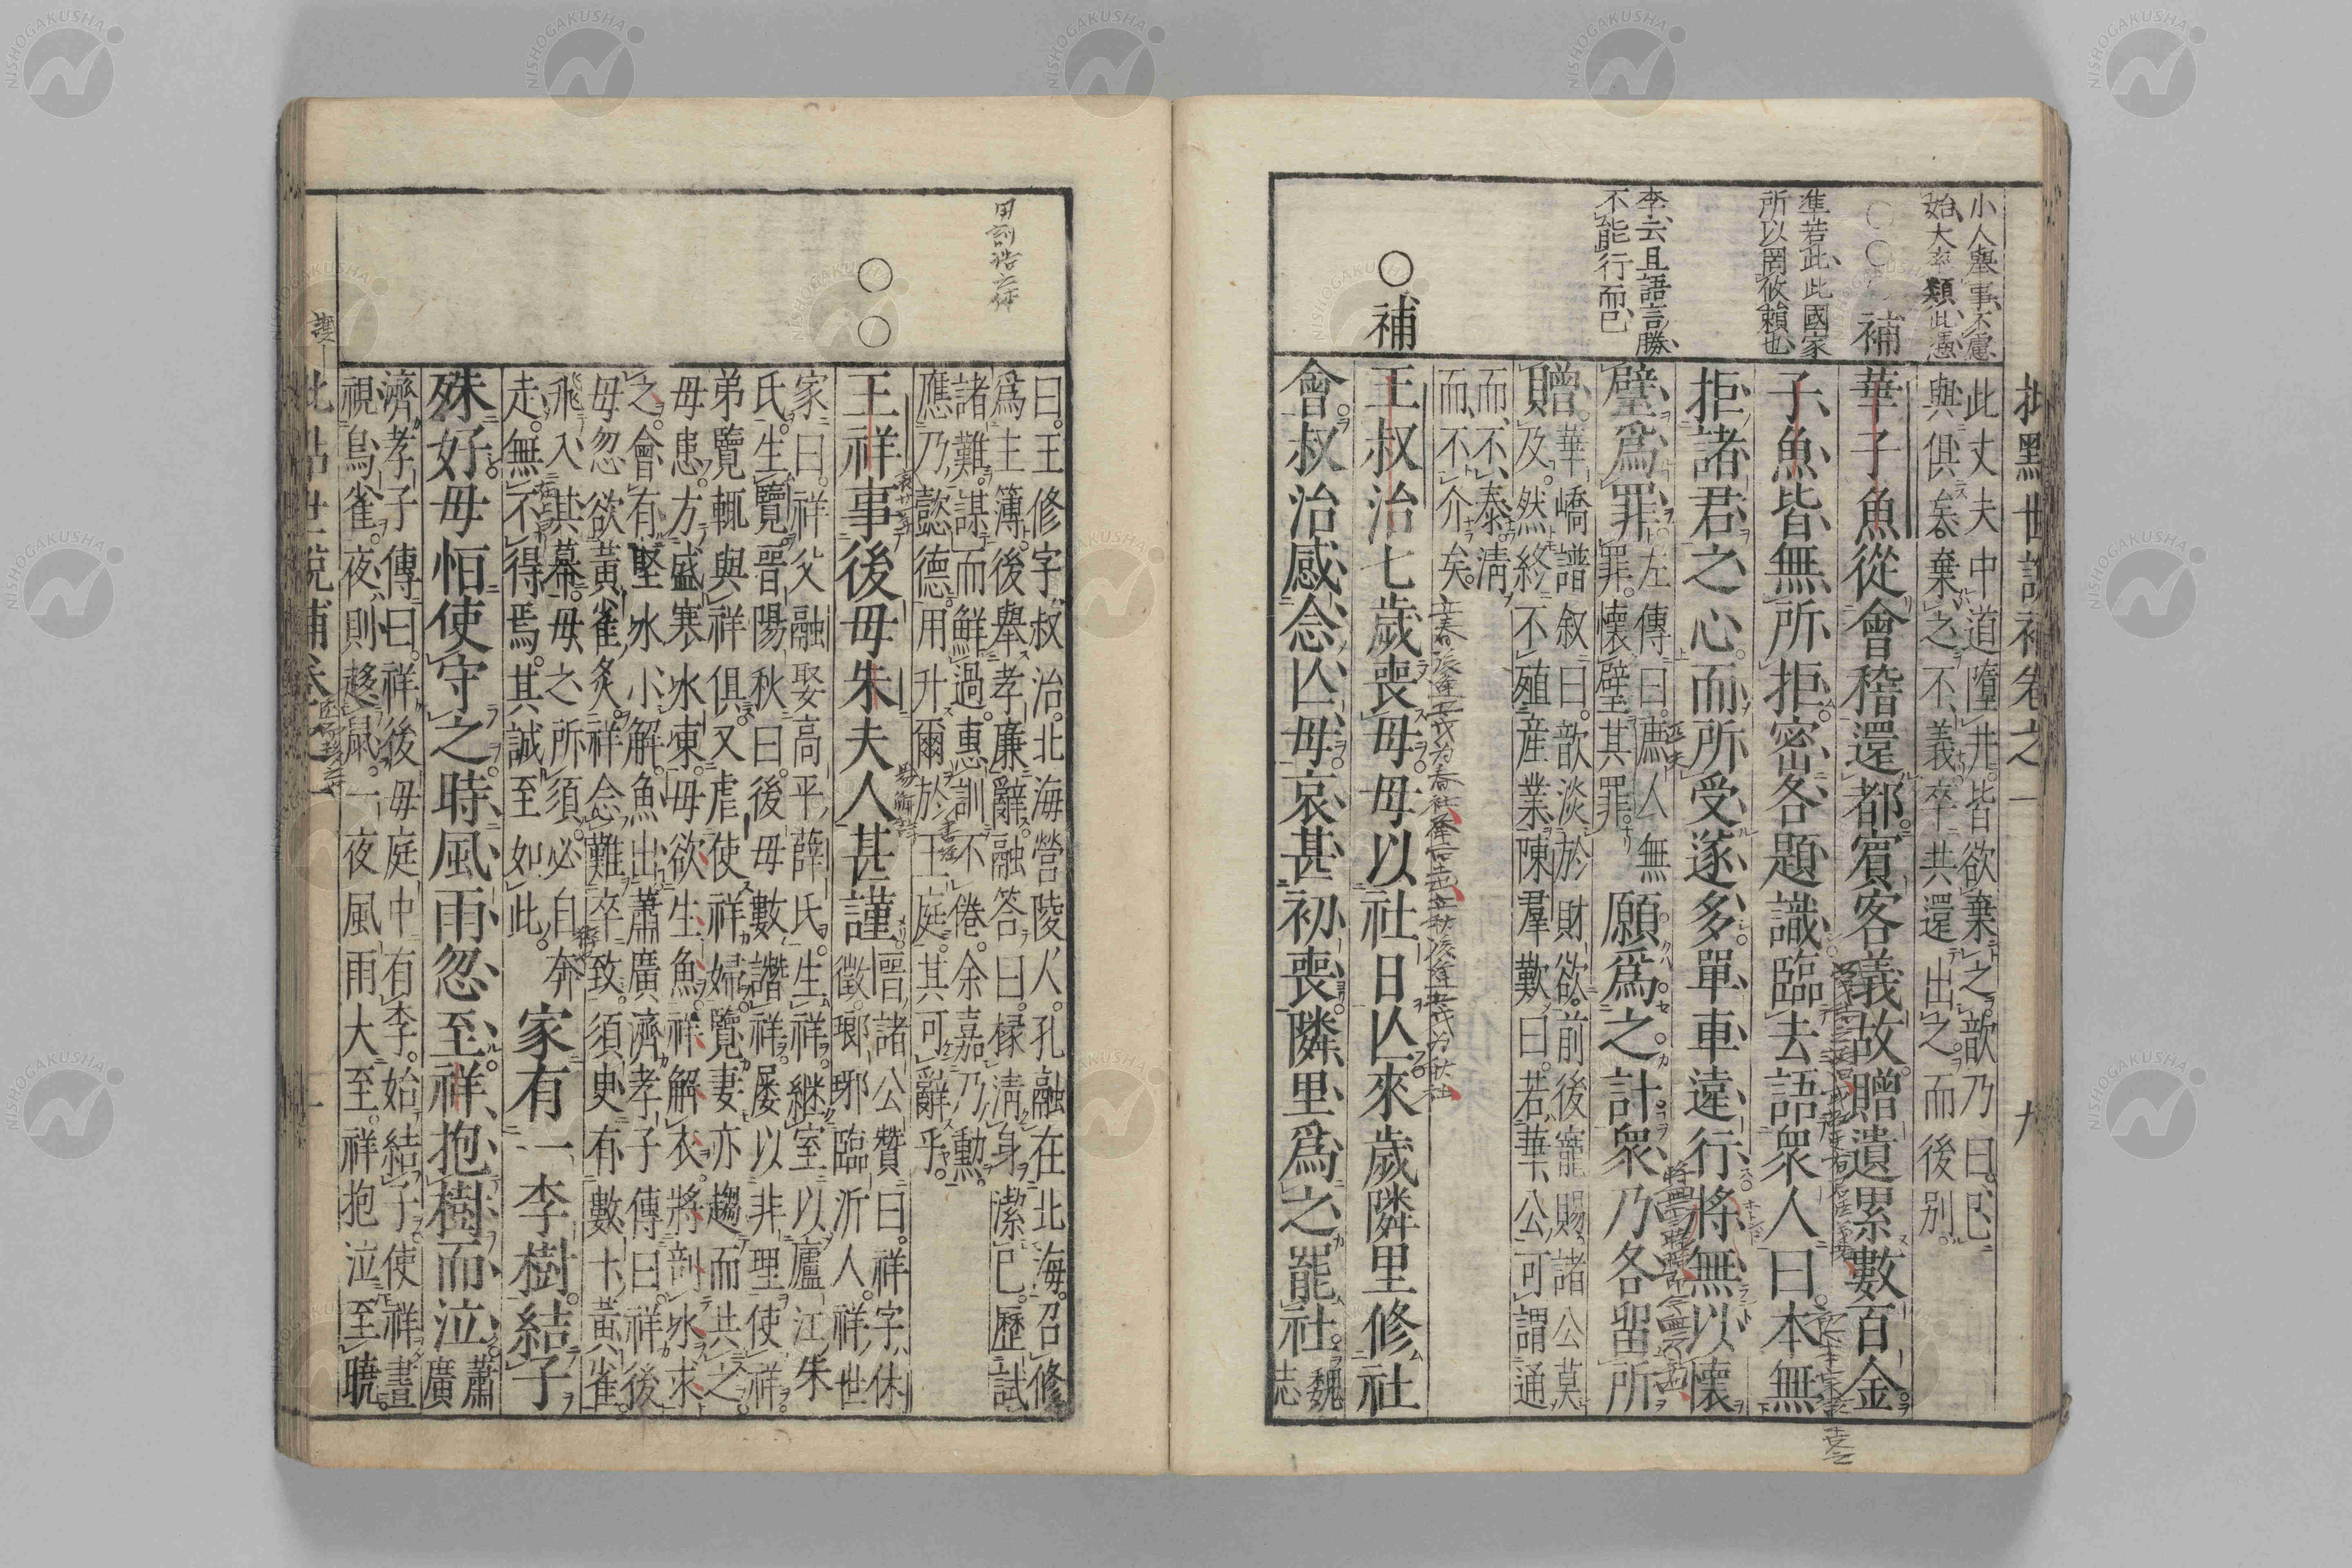 批點世說補卷之一
九
小人舉事不慮
始大率類此憑
此丈夫中道墮井皆欲棄之歆乃曰已
與俱矣棄之不義卒共還出之而後別
補
華子魚從會稽還都賓客義故贈遺累數百金
隼若此此國家
所以罔攸賴也
子魚皆無所拒密各題識臨去語衆人曰本無
拒諸君之心而所受遂多單車遠行將無以懷
李云且語言勝
不能行而已
璧爲罪
左傳曰庶人無
罪懷璧其罪
願爲之計衆乃各留所
贈
華嶠譜叙曰歆淡於財欲前後寵賜諸公莫
及然終不殖産業陳羣歎曰若華公可謂通
而不泰清
而不介矣
補
王叔治七歲喪母母以社日亡來歲隣里修社
會叔治感念亡母哀甚初喪隣里爲之罷社
魏
志
曰王修字叔治北海營陵人孔融在北海召修
爲主簿後舉孝廉辭融答曰掾清身潔已歷試
諸難謀而鮮過惠訓不倦余嘉乃勳
應乃懿德用升爾於王庭其可辭乎
王祥事後母朱夫人甚謹
晉諸公贊曰祥字休
徵瑯琊臨沂人祥世
家曰祥父融娶高平薛氏生祥繼室以廬江朱
氏生覽晋陽秋曰後母數譖祥屡以非理使祥
弟覽輒與祥俱又虐使祥婦覽妻亦趨而共之
母患方盛寒氷凍母欲生魚祥解衣將剖氷求
之會有堅氷小解魚出蕭廣濟孝子傳曰祥後
母忽欲黃雀炙祥念難卒致須臾有數十黃雀
飛入其幕母之所須必自奔
走無不得焉其誠至如此
家有一李樹結子
殊好母恒使守之時風雨忽至祥抱樹而泣
蕭
廣
濟孝子傳曰祥後母庭中有李始結子使祥晝
視鳥雀夜則趂鼠一夜風雨大至祥抱泣至曉